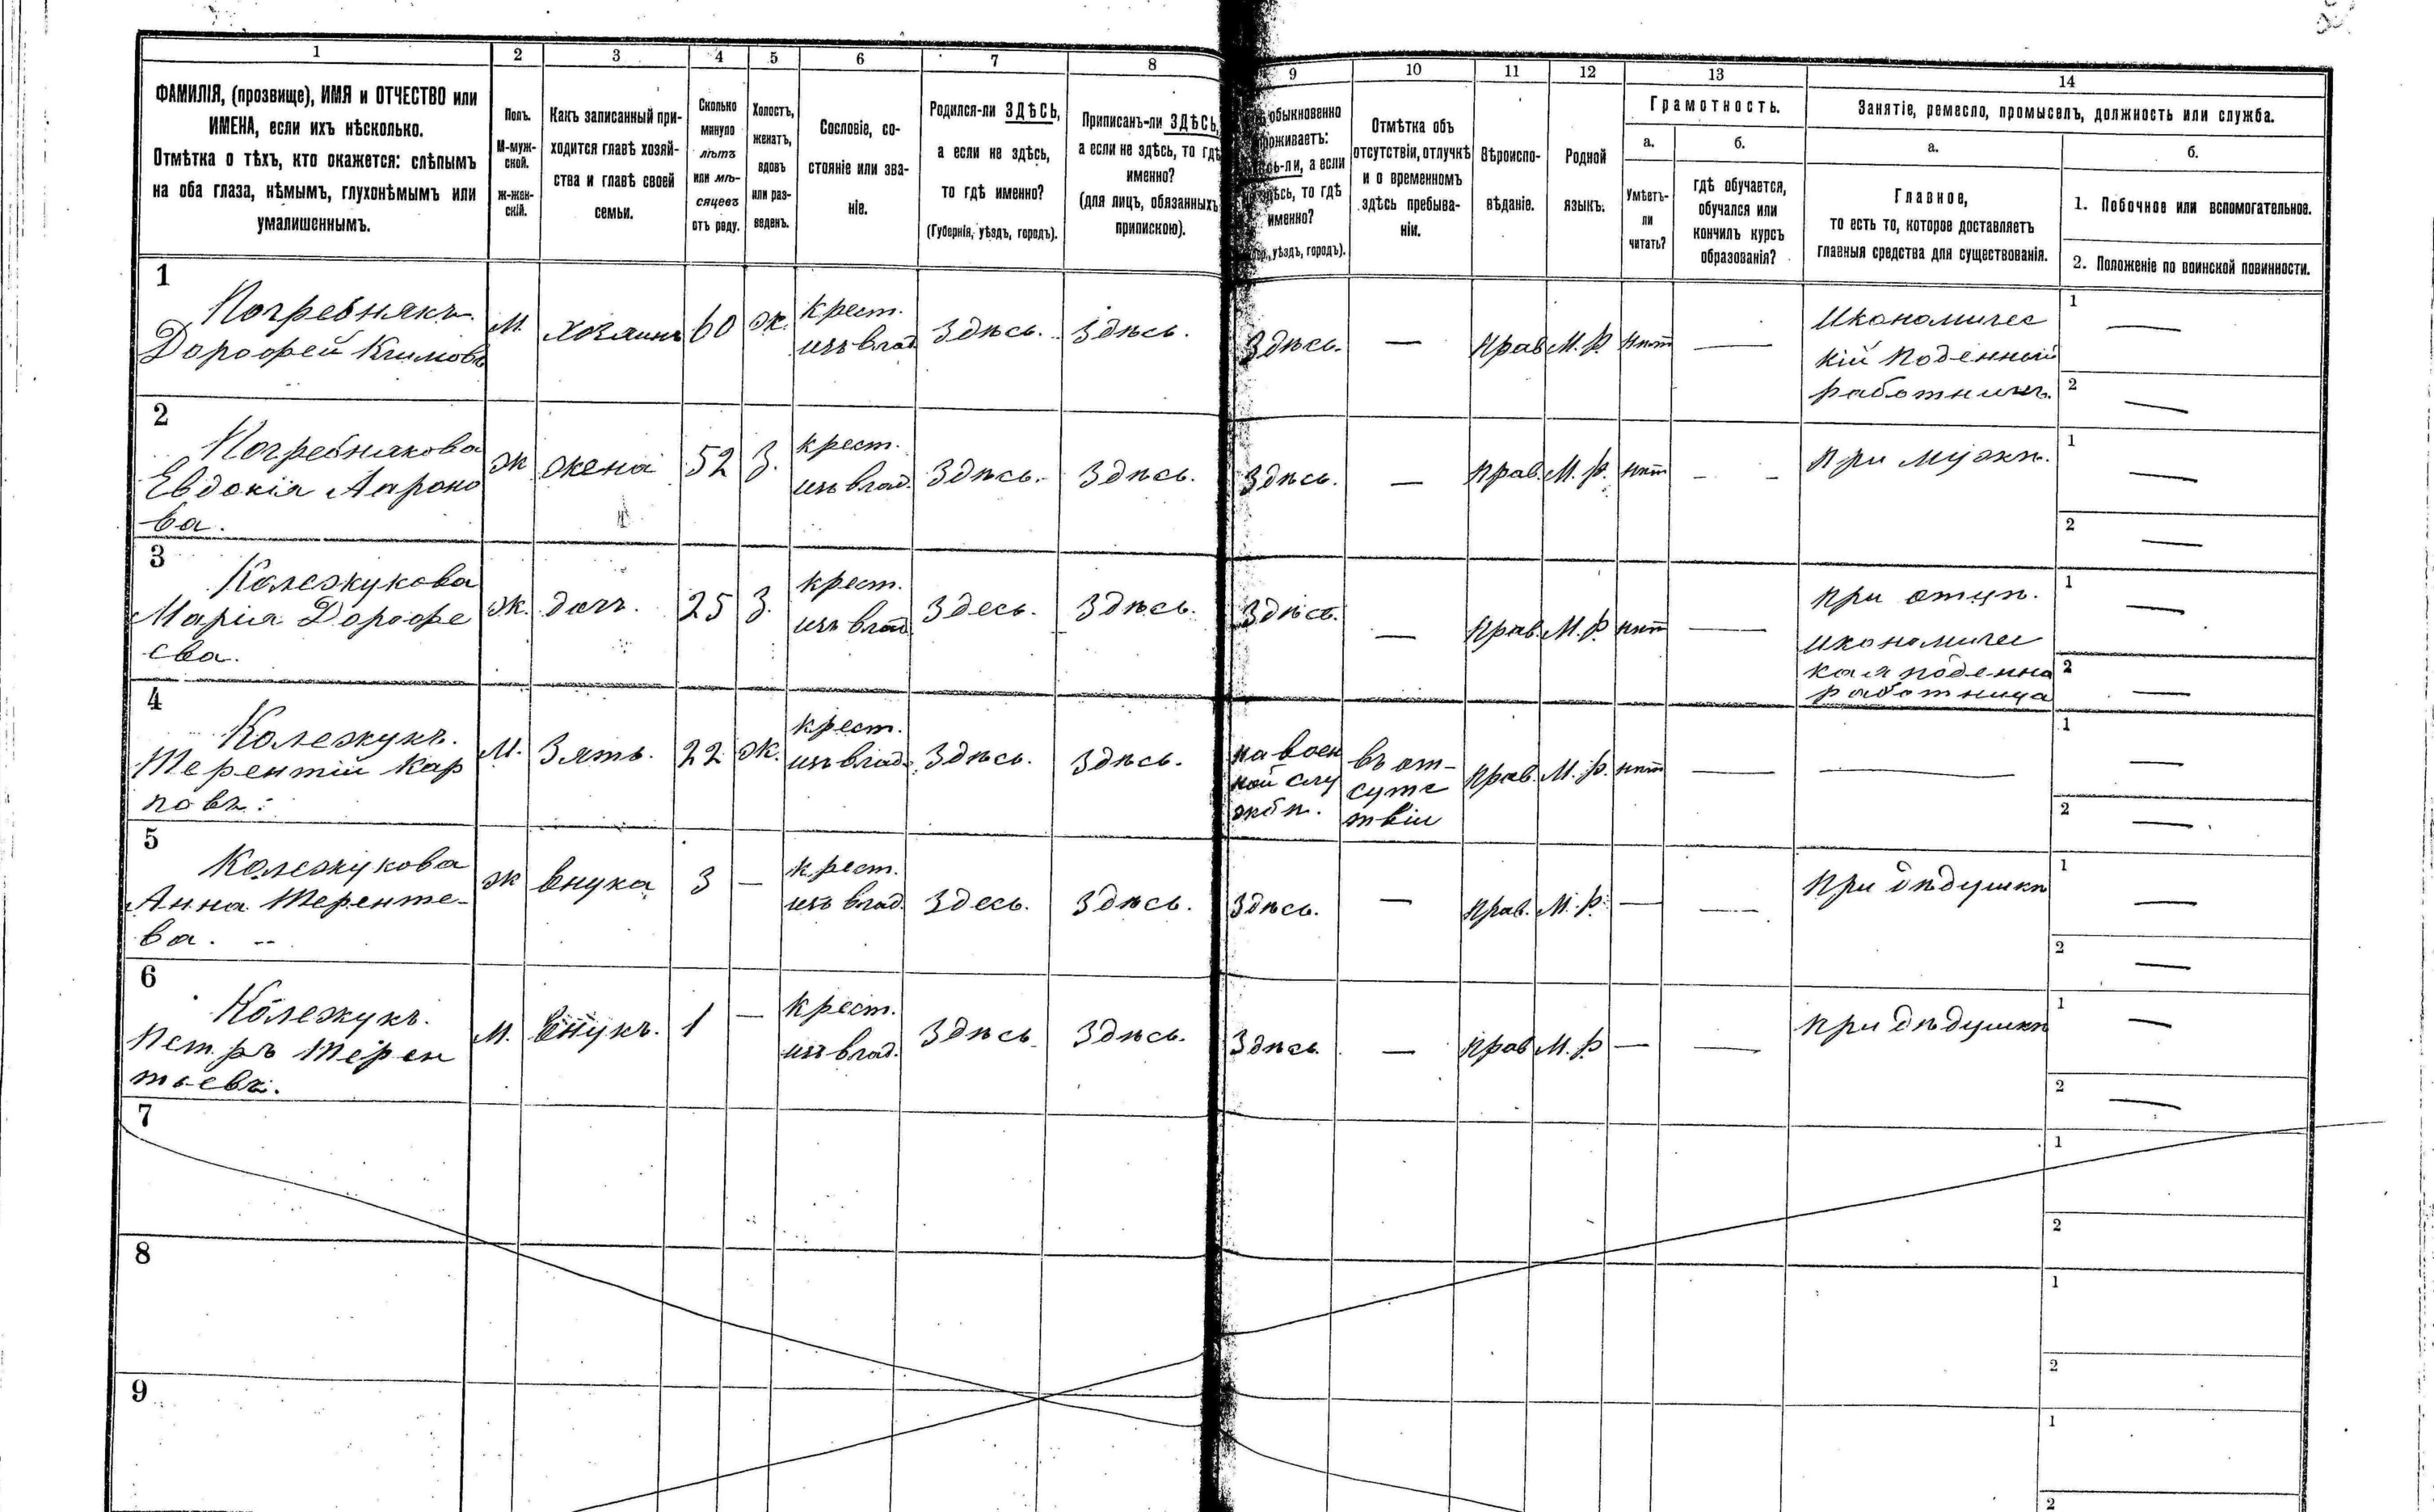 1 2 3 4 5 6 7 8 9 10 11 12 13 14
ФАМИЛІЯ, (прозвище), ИМЯ и ОТЧЕСТВО или
ИМЕНА, если ихъ нѣсколько.
Отмѣтка о тѣхъ, кто окажется: слѣпымъ
на оба глаза, нѣмымъ, глухонѣмымъ или
умалишеннымъ.
Полъ.
М-муж-
ской.
ж-жен-
скій.
Какъ записанный при-
ходится главѣ хозяй-
ства и главѣ своей
семьи.
Сколько
минуло
лѣтъ
или мѣ-
сяцевъ
отъ роду.
Холостъ,
женатъ,
вдовъ
или раз-
веденъ.
Сословіе, со-
стояніе или зва-
ніе.
Родился-ли ЗДѢСЬ,
а если не здѣсь,
то гдѣ именно?
(Губернія, уѣздъ, городъ).
Приписанъ-ли ЗДѢСЬ,
а если не здѣсь, то гдѣ
именно?
(для лицъ, обязанныхъ
припискою).
обыкновенно
проживаетъ:
здѣсь-ли, а если
не здѣсь, то гдѣ
именно?
уѣздъ, городъ).
Отмѣтка объ
отсутствіи, отлучкѣ
и о временномъ
здѣсь пребыва-
ніи.
Вѣроиспо-
вѣданіе.
Родной
языкъ.
Грамотность.
а.
Умѣетъ-
ли
читать?
б.
гдѣ обучается,
обучался или
кончилъ курсъ
образованія?
Занятіе, ремесло, промыселъ, должность или служба.
а.
Главное,
то есть то, которое доставляетъ
главныя средства для существованія.
б.
1. Побочное или вспомогательное.
2. Положеніе по воинской повинности.
1
Погребнякъ
Дорофей Климовъ
М.
хозяинъ
60
ж.
крест.
изъ влад.
Здѣсь.
Здѣсь.
Здѣсь.
—
Прав
М. Р.
нѣт
—
Икономичес
кій Поденный
работникъ.
1 —
2 —
2
Погребнякова
Евдокія Аароно
ва.
ж
жена
52
З.
крест.
изъ влад.
Здѣсь.
Здѣсь.
Здѣсь.
—
Прав.
М. Р.
нѣт
— —
при мужѣ.
1 —
2 —
3
Колежукова
Марія Дорофе
ева.
ж.
дочь.
25
З.
крест.
изъ влад
Здесь.
Здѣсь.
Здѣсь.
—
Прав.
М. Р.
нѣт
—
при отцѣ.
икономичес
кая поденна
работница
1 —
2 —
4
Колежукъ.
Терентій Кар
повъ.
М.
Зять.
22
ж.
крест.
изъ влад.
Здѣсь.
Здѣсь.
на воен
ной слу
жбѣ.
въ от-
сутс
твіи
Прав.
М. Р.
нѣт
—
—
1 —
2 —
5
Колежукова
Анна Теренте-
ва.
ж
внука
3
—
крест.
изъ влад.
Здесь.
Здѣсь.
Здѣсь.
—
Прав.
М. Р.
—
—
При дѣдушкѣ
1 —
2 —
6
Колежукъ.
Петръ Терен
тьевъ.
М.
внукъ.
1
—
Крест.
изъ влад.
Здѣсь
Здѣсь.
Здѣсь.
—
Прав
М. Р
—
—
при дѣдушкѣ
1 —
2 —
7
1
2
8
1
2
9
1
2